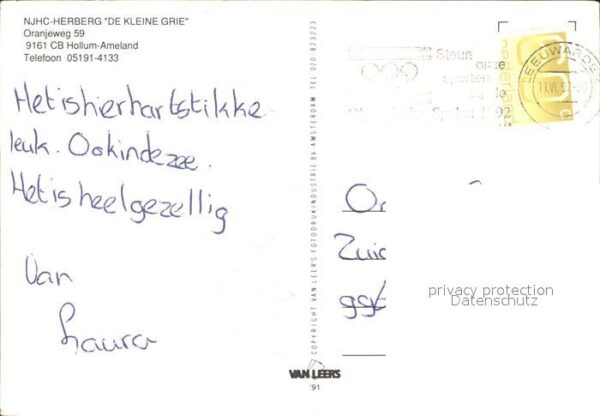 NJHC-HERBERG "DE KLEINE GRIE"
Oranjeweg 59
9161 CB Hollum-Ameland
Telefoon 05191-4133
Het is hier hartstikke
leuk. Ook in de zee.
Het is heel gezellig
Van
Laura
COPYRIGHT VAN LEER'S FOTODRUKINDUSTRIE BV AMSTERDAM TEL 020-823223
VAN LEERS
'91
Steun
onze
LEEUWARDEN
nederland
Zuid
privacy protection
Datenschutz